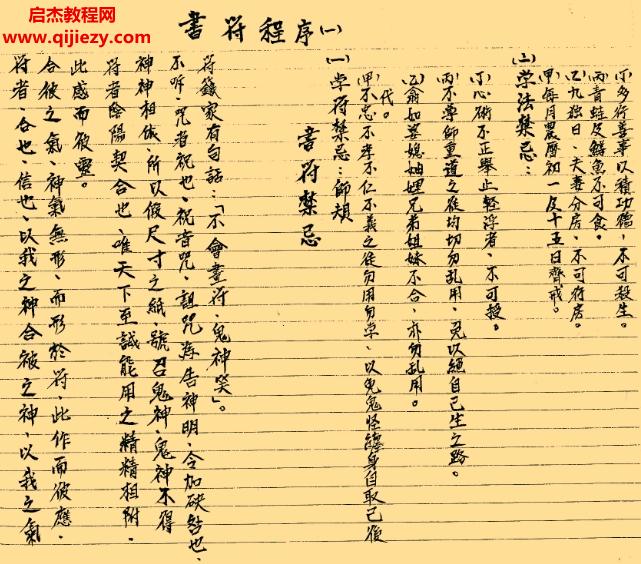 启杰教程网
www.qijiezy.com
書符程序(一)
符者、合也、信也、以我之神合彼之神、以我之氣
合彼之氣、神氣無形、而形於符、此作而彼應、
此感而彼靈。
符者陰陽契合也、唯天下至誠能用之精精相附、
神神相依、所以假尺寸之紙、號召鬼神、鬼神不得
不、咒者祝也、祝音咒、詛咒為告神明、令加殃咎也、
符籙家有句話:「不會畫符、鬼神笑」。
書符禁忌
(一)学符禁忌:師
(甲)不忠、不孝不仁不義之徒勿用勿学、以免鬼怪纏身自取己後
代。
(乙)翁如婆媳妯娌兄弟姐妹不合、亦勿乱用。
(丙)不尊師重道之徒均切勿乱用、免以絕自己生之路。
(丁)心術不正舉止轻浮者、不可授。
(二)学法禁忌:
(甲)每月農曆初一及十五日齊戒。
(乙)九独日、夫妻分房、不可行房。
(丙)青蛙及鱔魚不可食。
(丁)多行善事以積功德、不可殺生。